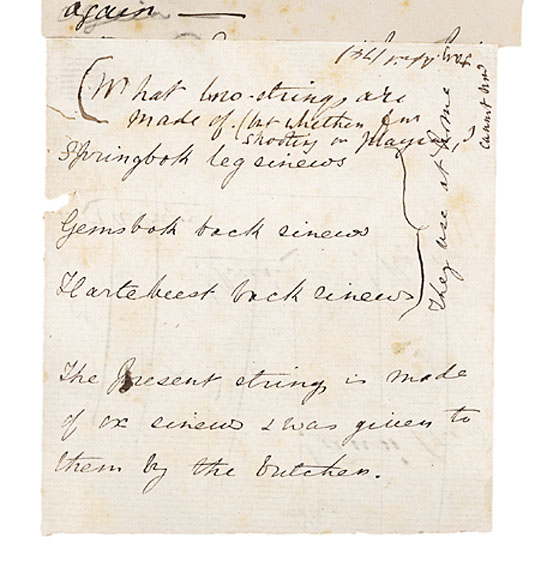 again —
(What bow-strings are
made of. (but whether for
shooting or playing?)
Springbok leg sinews
Gemsbok back sinews
Hartebeest back sinews
They use at home
cannot
The present string is made
of ox sinews & was given to
them by the butcher.